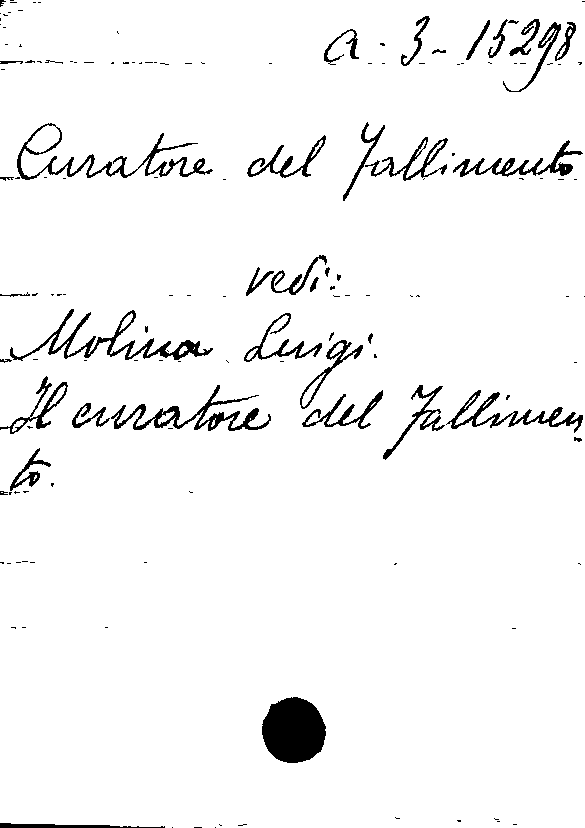 a. 3- 15298
Curatore del Fallimento
vedi:
Molina Luigi.
Il curatore del Fallimen
to.